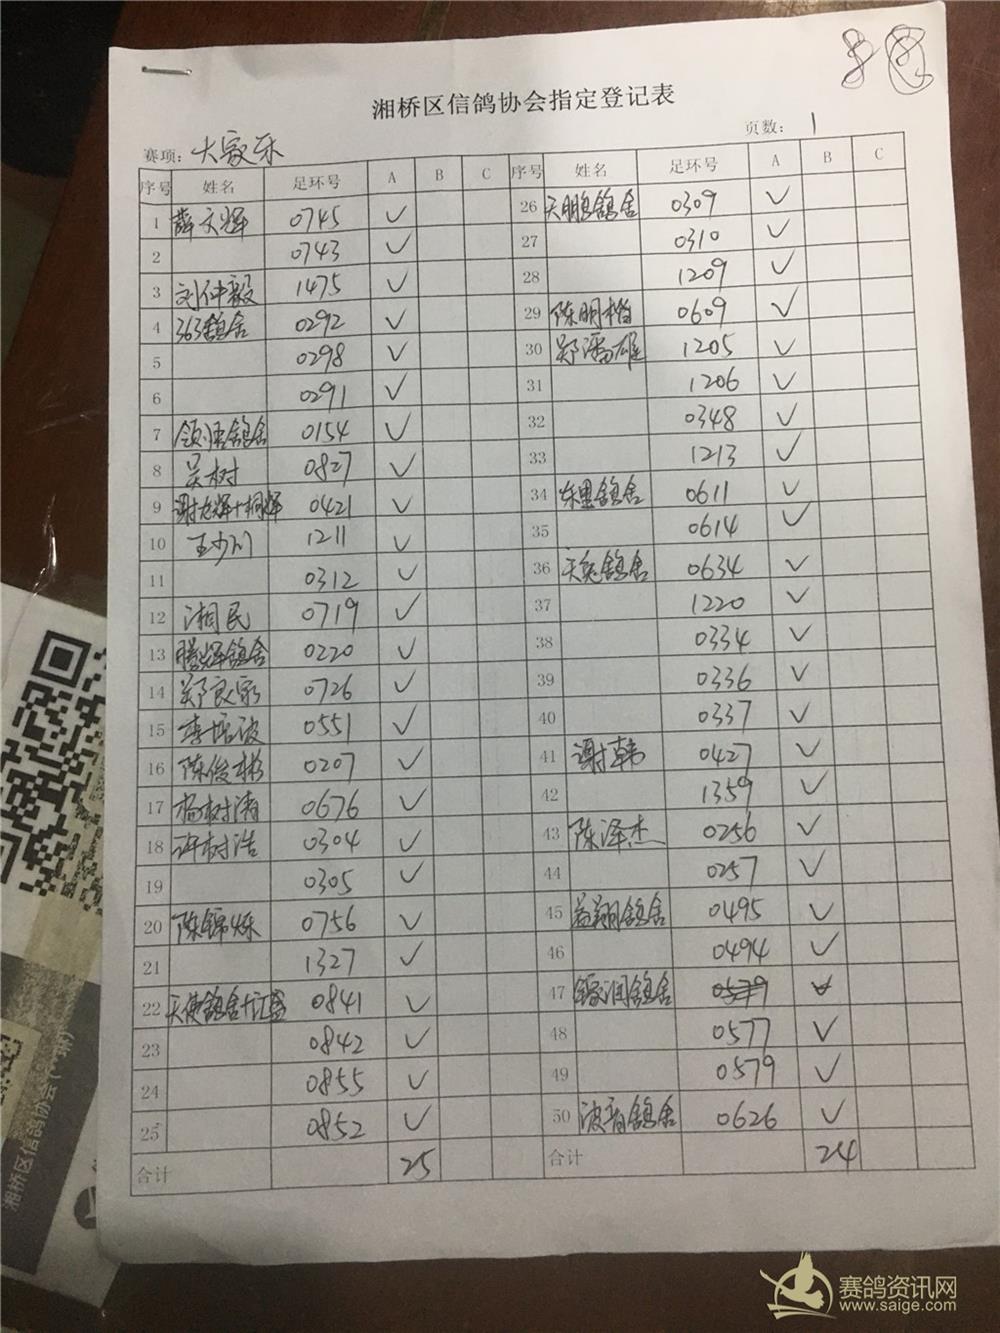 湘桥区信鸽协会指定登记表
赛项: 大家乐 页数: 1
序号 姓名 足环号 A B C 序号 姓名 足环号 A B C
1 薛文辉 0745 ✓ 26 天鹏鸽舍 0309 ✓
2 0743 ✓ 27 0310 ✓
3 刘仲毅 1475 ✓ 28 1209 ✓
4 363鸽舍 0292 ✓ 29 陈明楷 0609 ✓
5 0298 ✓ 30 郑潘雄 1205 ✓
6 0291 ✓ 31 1206 ✓
7 鸽舍 0154 ✓ 32 0348 ✓
8 吴树 0827 ✓ 33 1213 ✓
9 0421 ✓ 34 东里鸽舍 0611 ✓
10 王少川 1211 ✓ 35 0614 ✓
11 0312 ✓ 36 鸽舍 0634 ✓
12 湘民 0719 ✓ 37 1220 ✓
13 腾辉鸽舍 0220 ✓ 38 0334 ✓
14 0726 ✓ 39 0336 ✓
15 李培波 0551 ✓ 40 0337 ✓
16 陈俊彬 0207 ✓ 41 谢韩 0427 ✓
17 杨树涛 0676 ✓ 42 1359 ✓
18 许树浩 0304 ✓ 43 陈泽杰 0256 ✓
19 0305 ✓ 44 0257 ✓
20 陈锦烁 0756 ✓ 45 益翔鸽舍 0495 ✓
21 1327 ✓ 46 0494 ✓
22 天使鸽舍+江盛 0841 ✓ 47 鸽舍
23 0842 ✓ 48 0577 ✓
24 0855 ✓ 49 0579 ✓
25 0852 ✓ 50 波音鸽舍 0626 ✓
合计 25 合计 24
湘桥区信鸽协会
赛鸽资讯网
www.saige.com